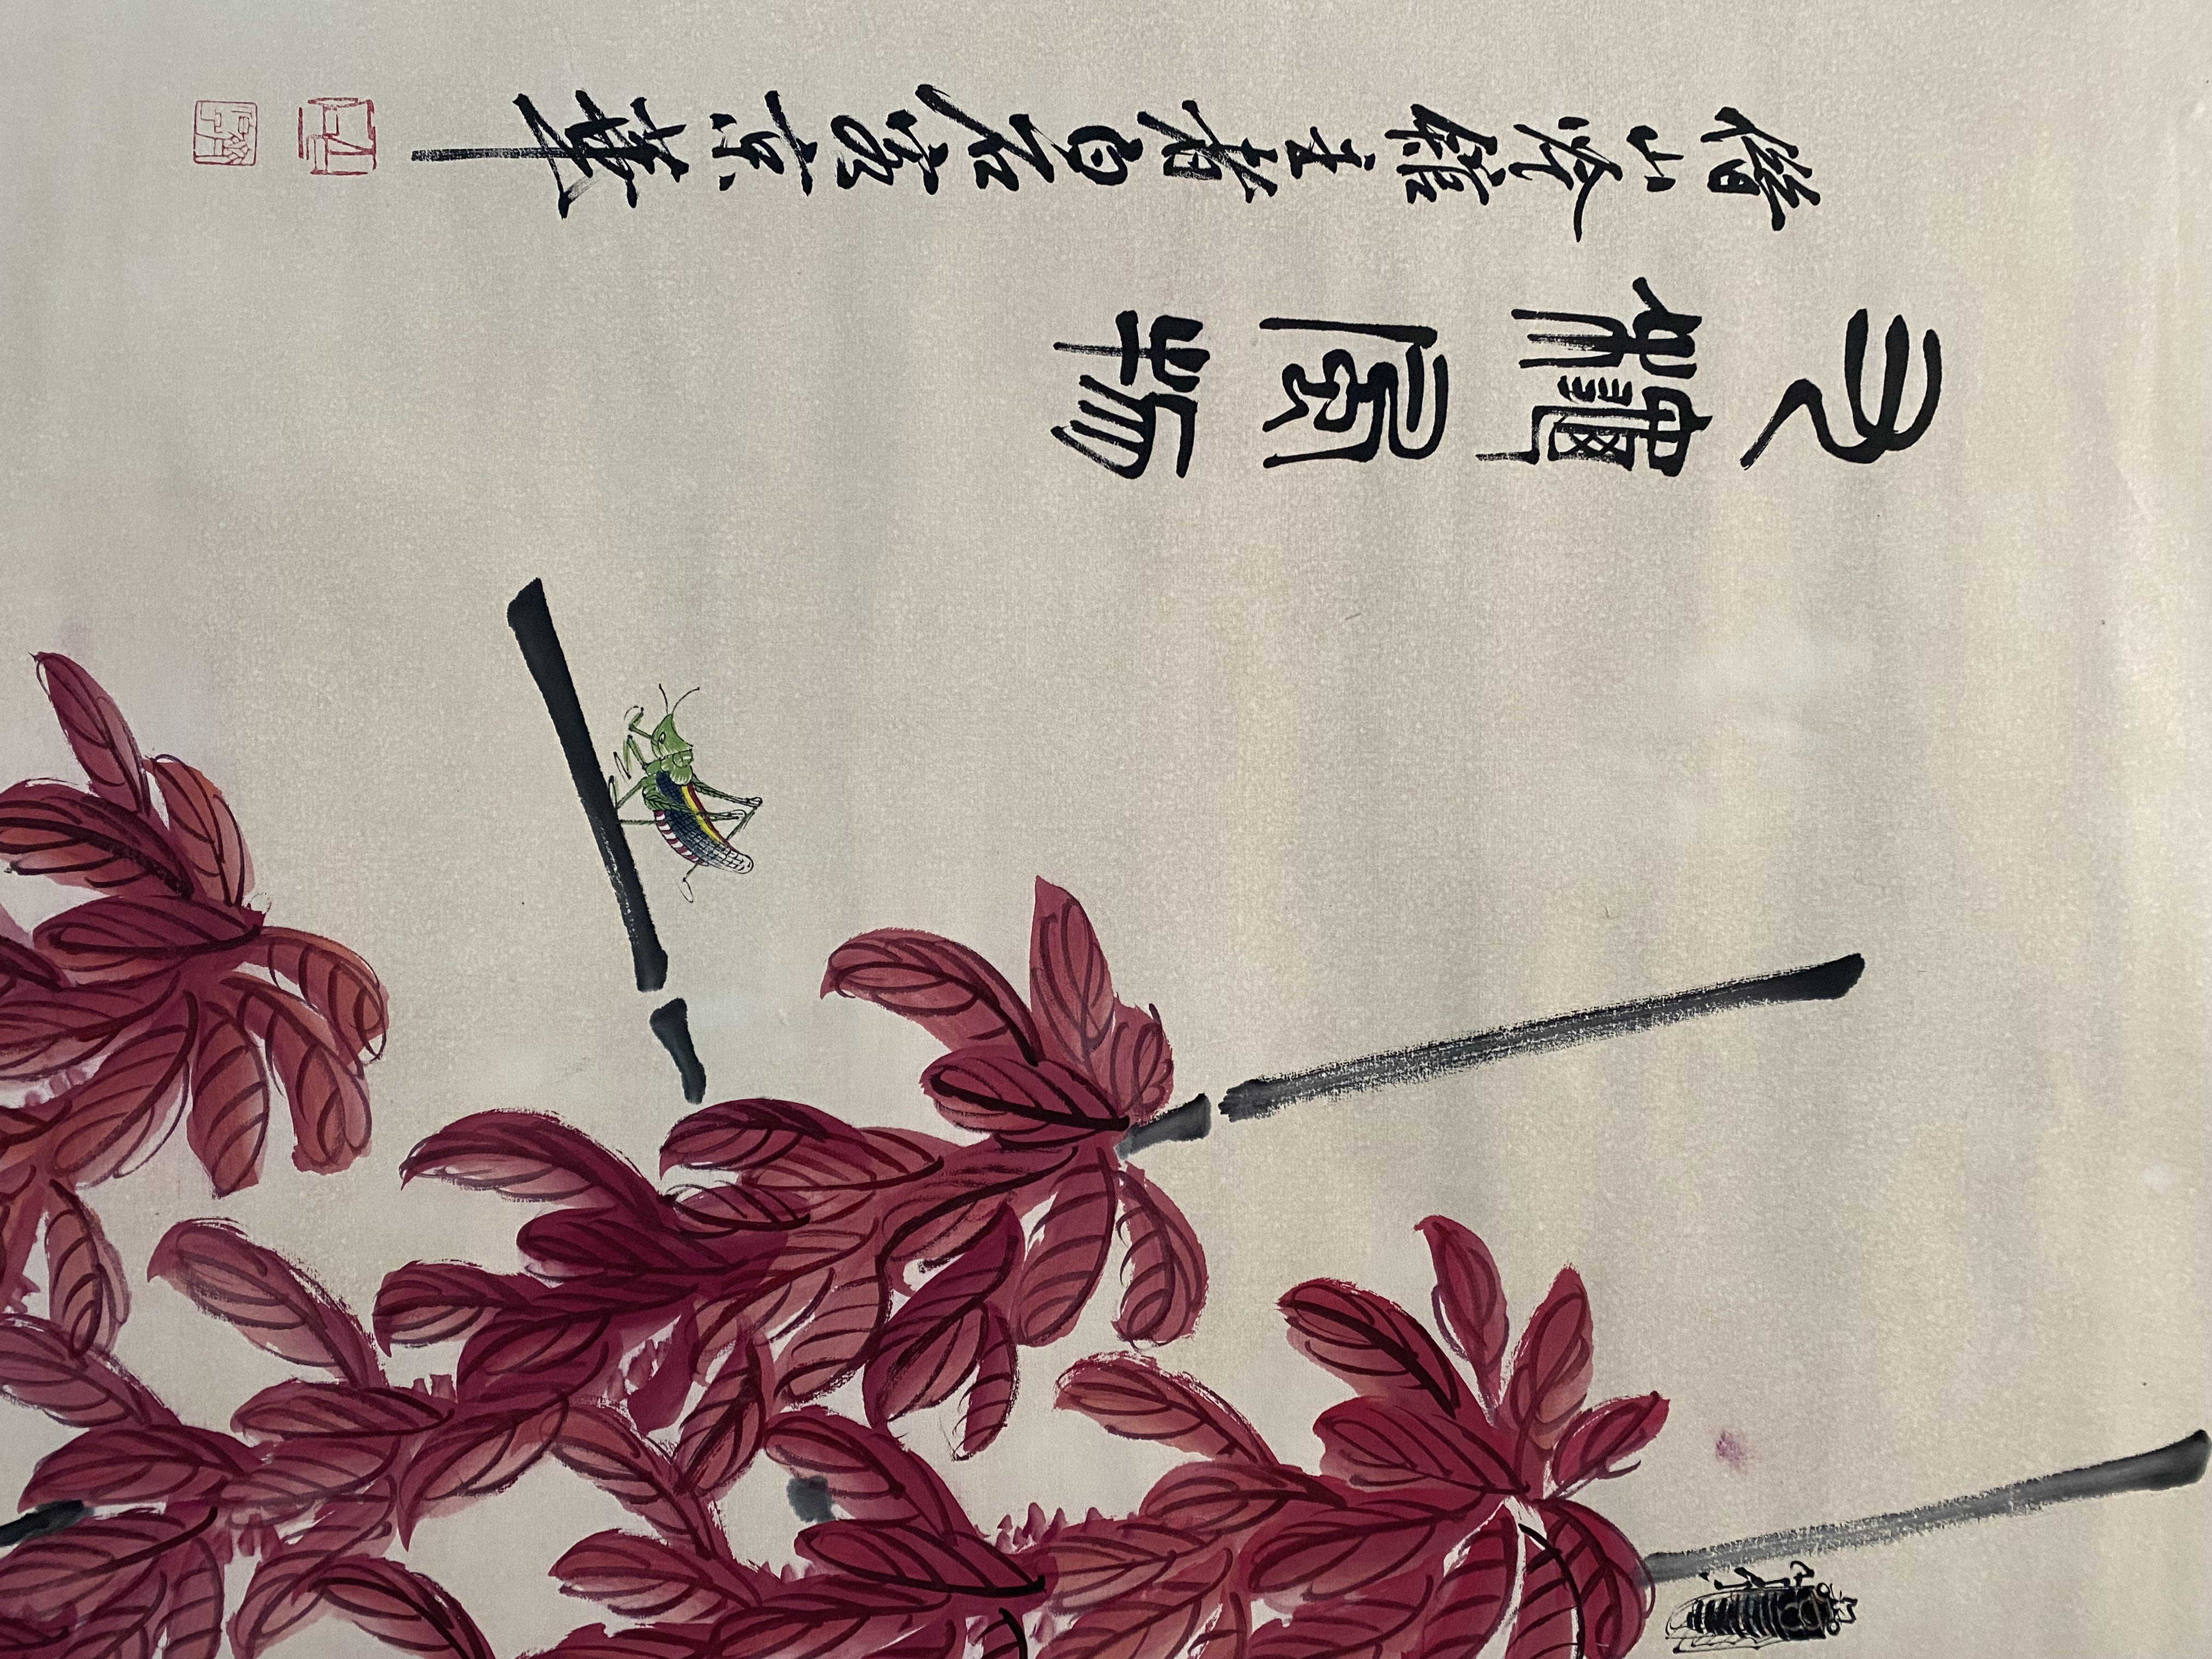 九龝風物
借山吟館主者白石客京華